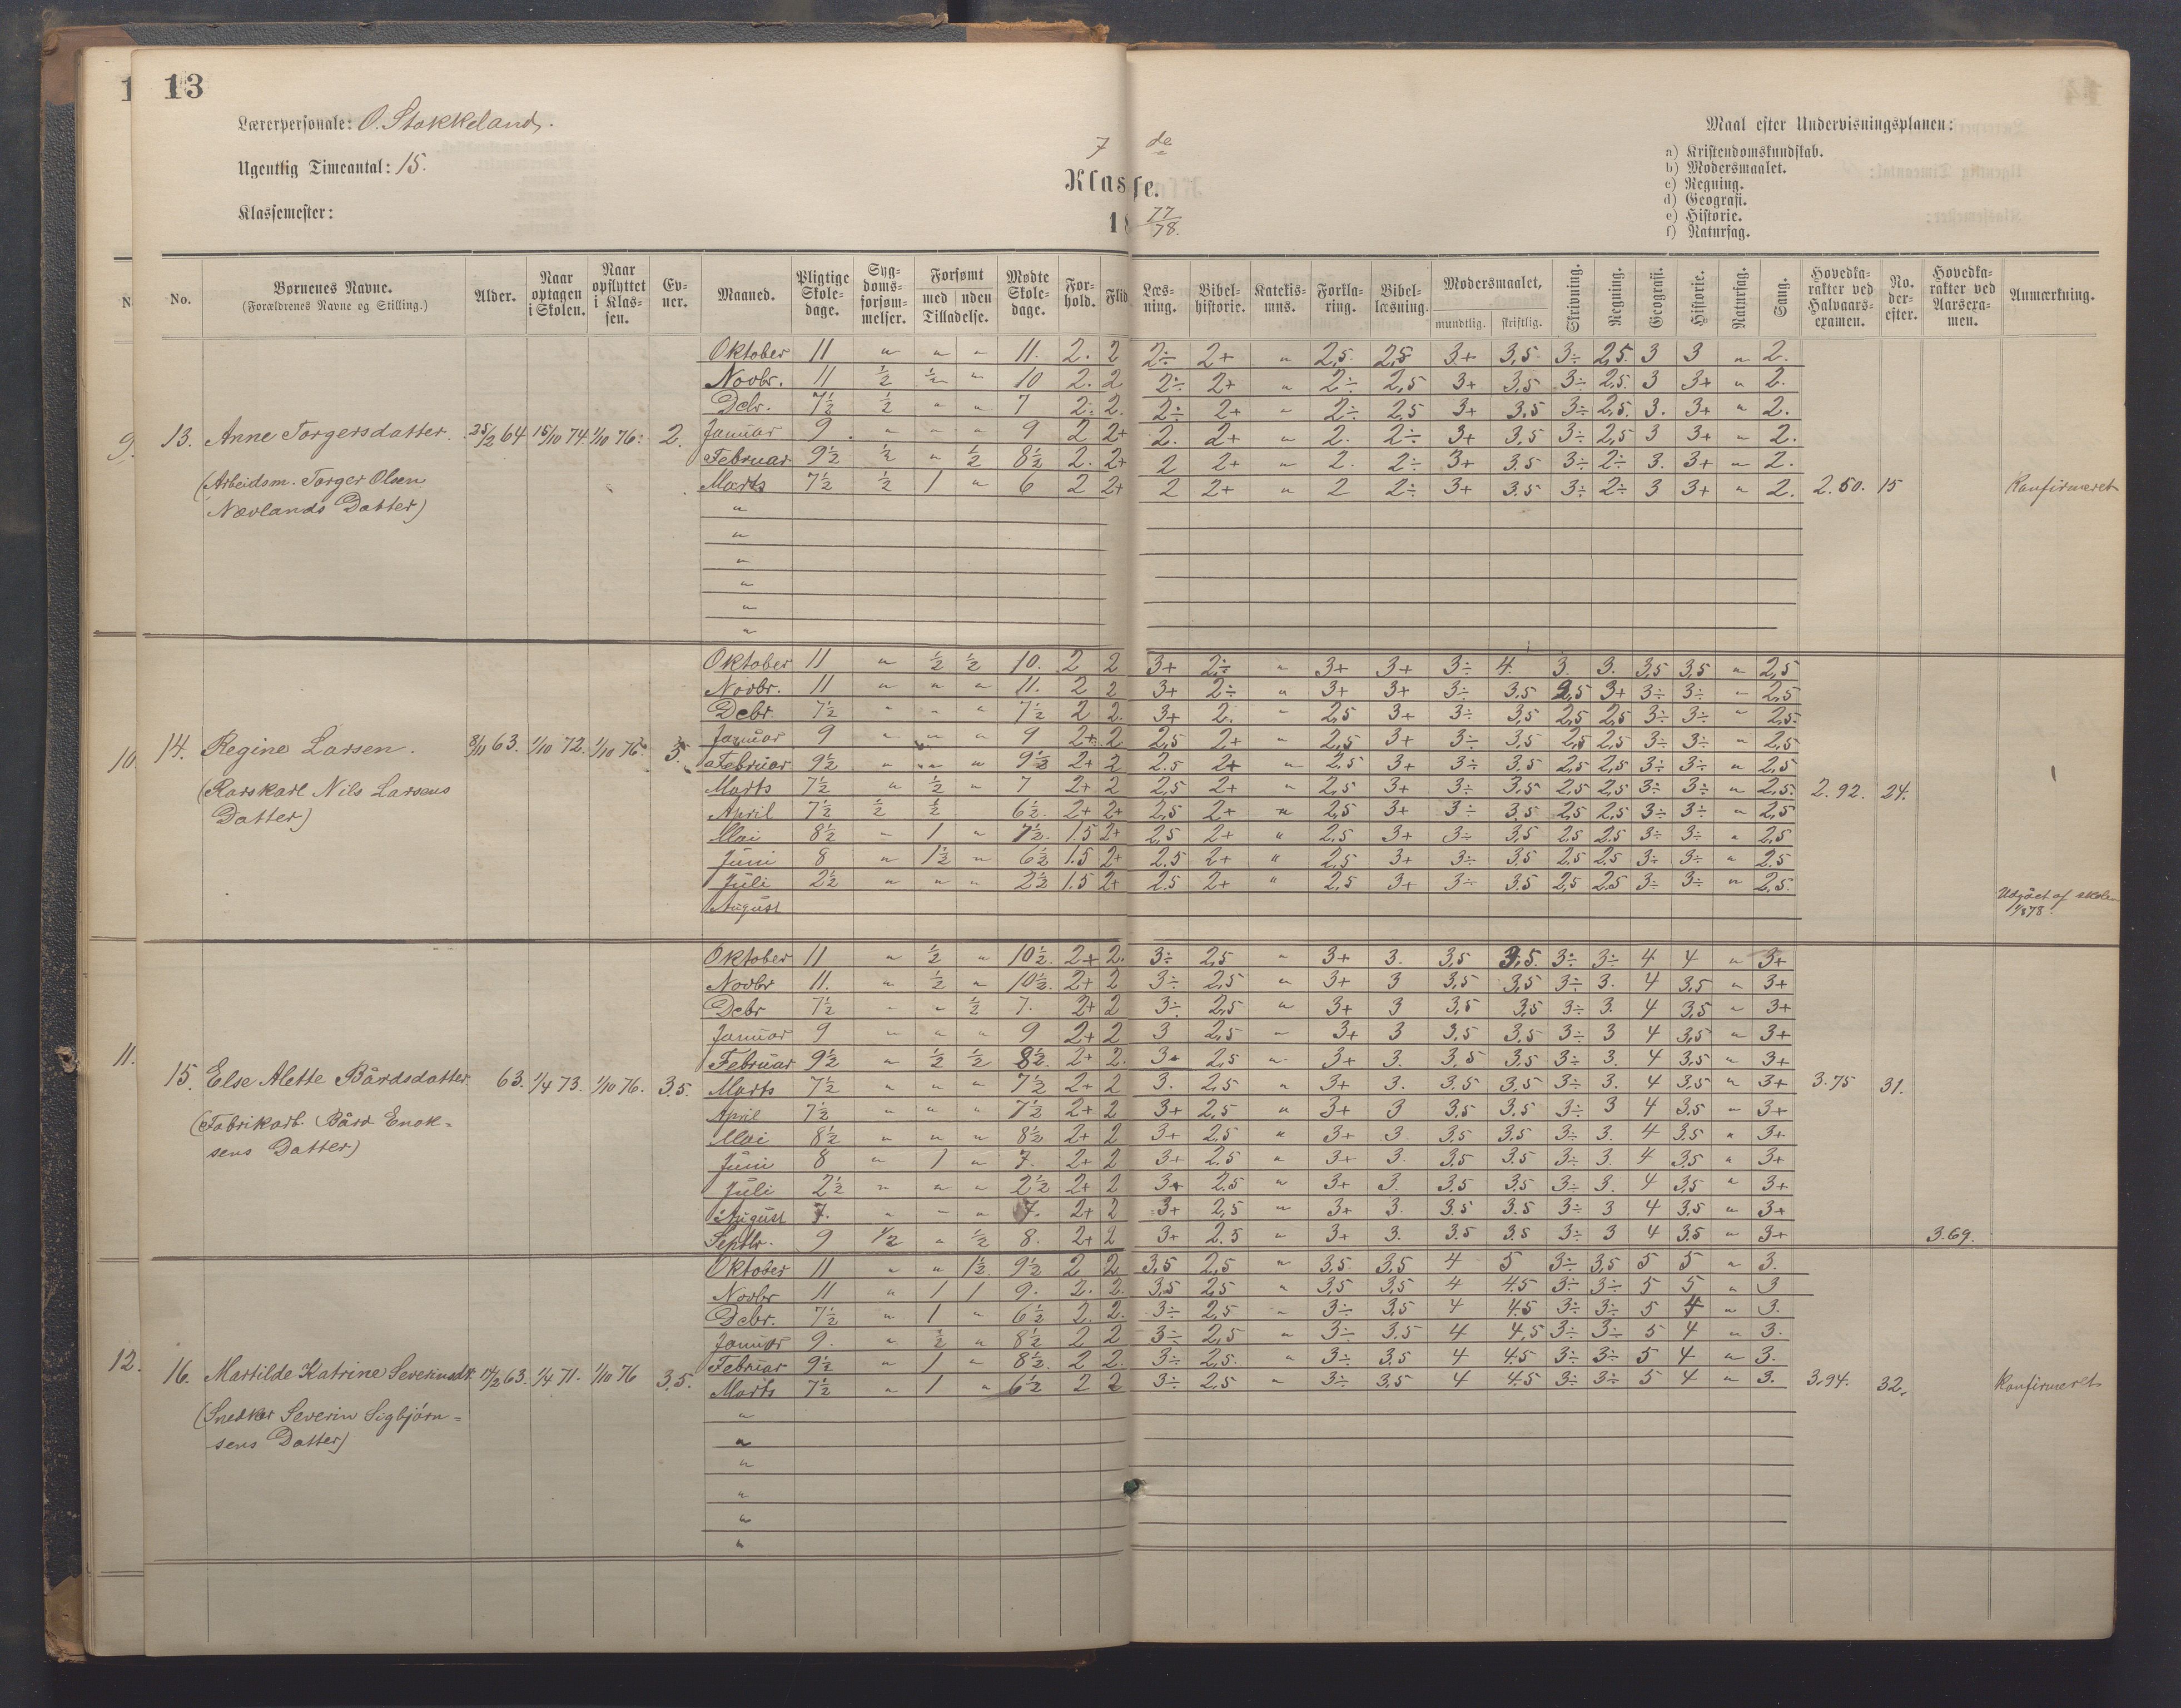 13
Lærerpersonale: O. Stokkeland.
Ugentlig Timeantal: 15.
Klassemester:
7 de
Klasse.
18 77/78.
Maal efter Undervisningsplanen:
a) Kristendomskundskab.
b) Modersmaalet.
c) Regning.
d) Geografi.
e) Historie.
f) Naturfag.
No. Børnenes Navne. (Forældrenes Navne og Stilling.) Alder. Naar optagen i Skolen. Naar opflyttet i Klassen. Evner. Maaned. Pligtige Skoledage. Sygdomsforsømmelser. Forsømt med uden Tilladelse. Mødte Skoledage. Forhold. Flid Læsning. Bibelhistorie. Katekismus. Forklaring. Bibellæsning. Modersmaalet, mundtlig. skriftlig. Skrivning. Regning. Geografi. Historie. Naturfag. Sang. Hovedkarakter ved Halvaarsexamen. No. derefter. Hovedkarakter ved Aarsexamen. Anmærkning.
Oktober 11 " " " 11. 2. 2 2÷ 2+ " 2,5. 2,5 3+ 3,5 3÷ 2,5. 3 3 " 2.
Novbr. 11 ½ ½ " 10 2. 2 2÷ 2+ " 2÷ 2,5 3+ 3,5 3÷ 2,5. 3 3+ " 2.
Debr. 7½ ½ " " 7 2. 2. 2÷ 2+ " 2÷ 2,5 3+ 3.5 3÷ 2,5. 3. 3+ " 2.
9. 13. Anne Torgersdatter. 25/2 64 15/10 74. 1/10 76. 2. Januar 9 " " " 9 2 2+ 2. 2+ " 2. 2÷ 3+ 3.5 3÷ 2,5 3 3+ " 2.
Februar 9½ ½ " ½ 8½ 2. 2+ 2 2+ " 2. 2÷ 3+ 3.5 3÷ 2÷ 3. 3+ " 2.
(Arbeidsm. Torger Olsen Marts 7½ ½ 1 " 6 2 2+ 2 2+ " 2 2÷ 3+ 3.5 3÷ 2÷ 3 3+ " 2. 2.50. 15 Konfirmeret
Nævlands Datter) "
"
"
"
"
"
Oktober 11 " ½ ½ 10. 2 2 3+ 2÷ " 3+ 3+ 3÷ 4. 3. 3. 3,5 3,5 " 2,5
Novbr. 11 " " " 11. 2 2 3+ 2÷ " 3+ 3+ 3÷ 3,5 2,5 3+ 3÷ 3÷ " 2,5
Debr. 7½ " " " 7½ 2 2. 3+ 2. " 2,5 3+ 3÷ 3,5 2,5 2,5 3÷ 3÷ " 2,5.
10. 14. Regine Larsen. 8/11 63. 1/10 72. 1/10 76. 3. Januar 9 " " " 9 2+ 2 2,5 2+ " 2,5 3+ 3÷ 3,5 2,5 2,5 3÷ 3÷ " 2,5
Februar 9½ " " " 9½ 2+ 2 2.5 2+ " 2.5 3+ 3÷ 3.5 2,5 2,5 3÷ 3÷ " 2,5
(Karskarl Nils Larsens Marts 7½ " ½ " 7 2+ 2 2,5 2+ " 2,5 3+ 3÷ 3,5 2,5 2,5 3÷ 3÷ " 2,5. 2.92. 24.
Datter) April 7½ ½ ½ 6½. 2+ 2+ 2,5 2+ " 2,5 3+ 3÷ 3,5 2,5 2,5 3÷ 3÷ " 2,5
Mai 8½ " 1 " 7½. 1.5 2+ 2,5 2+ " 2,5 3+ 3÷ 3,5 2,5 2,5 3÷ 3÷ " 2,5
Juni 8 " 1½ " 6½ 1.5 2+ 2.5 2+ " 2,5 3+ 3÷ 3.5 2,5 2.5 3÷ 3÷ " 2.5
Juli 2½ " " " 2½ 1.5 2+ 2.5 2+ " 2,5 3+ 3÷ 3.5 2,5 2.5 3÷ 3÷ " 2,5.
August Udgået af skolen
1/8 78.
Oktober 11 " ½ " 10½. 2+ 2. 3÷ 2,5 " 3+ 3. 3,5 3,5. 3÷ 3÷ 4 4 " 3+
Novbr 11. " ½ " 10½. 2+ 2 3÷ 2,5 " 3+ 3 3,5 3,5 3÷ 3. 4 3,5 " 3+
Debr 7½ " " ½ 7. 2+ 2 3÷ 2,5 " 3+ 3 3,5 3,5 3÷ 3. 4 3,5 " 3+
Januar 9 " " " 9 2+ 2 3 2,5 " 3+ 3 3,5 3.5 3÷ 3 4 3,5 " 3+
11. Februar 9½ " ½ ½ 8½. 2+ 2. 3+ 2,5 " 3+ 3. 3,5 3,5 3÷ 3. 4 3,5 " 3+
15. Else Alette Bårdsdatter 63. 1/4 73. 1/10 76. 3.5. Marts 7½ " " " 7½ 2+ 2 3. 2,5 " 3+ 3. 3.5 3,5 3÷ 3. 4 3,5 " 3+ 3.75 31.
(Fabrikarb. Bård Enok= April 7½ " " " 7½ 2+ 2 3+ 2,5 " 3+ 3 3,5 3.5 3÷ 3 4 3,5 " 3+
sens Datter) Mai 8½ " " " 8½ 2+ 2 3+ 2,5 " 3+ 3. 3.5 3.5 3÷ 3. 4 3,5 " 3+
Juni 8 " 1 " 7. 2+ 2 3+ 2.5 " 3+ 3. 3.5 3.5 3÷ 3. 4 3,5 " 3+
Juli 2½ " " " 2½ 2+ 2 3+ 2.5 " 3+ 3 3.5 3.5 3÷ 3. 4 3,5 " 3+
August 7. " " " 7. 2+ 2 3+ 2,5 " 3+ 3. 3.5 3.5 3÷ 3 4 3,5 " 3+
Septbr. 9 ½ " ½ 8. 2+ 2 3+ 2.5 " 3+ 3. 3.5 3.5 3÷ 3 4 3.5 " 3+ 3.69.
Oktober 11 " " 1½. 9½ 2 2 3,5 2,5 " 3,5. 3,5 4 5 3÷ 3,5 5 5 " 3.
Novbr 11 " 1 1 9. 2. 2. 3,5 2,5 " 3,5 3,5 4 4.5 3÷ 3÷ 5 5 " 3
Debr. 7½ " 1 " 6½ 2. 2. 3÷ 2,5 " 3÷ 3,5 4 4.5 3÷ 3÷ 5 4 " 3.
Januar 9. " ½ " 8½ 2 2 3÷ 2,5 " 3÷ 3.5 4 4,5 3÷ 3÷ 5 4 " 3.
12. Februar 9½ " 1 " 8½. 2 2. 3÷ 2,5. " 3÷ 3.5 4 4.5 3÷ 3÷ 5 4 " 3.
16. Martilde Katrine Severinsdt. 17/2 63. 1/4 71. 1/10 76 3,5. Marts 7½ " 1 " 6½ 2 2 3÷ 2,5 " 3÷ 3,5 4 4.5 3÷ 3÷ 5 4 " 3. 3.94. 32. Konfirmeret
(Snedker Severin Sigbjørn= "
sens Datter) "
"
"
"
"